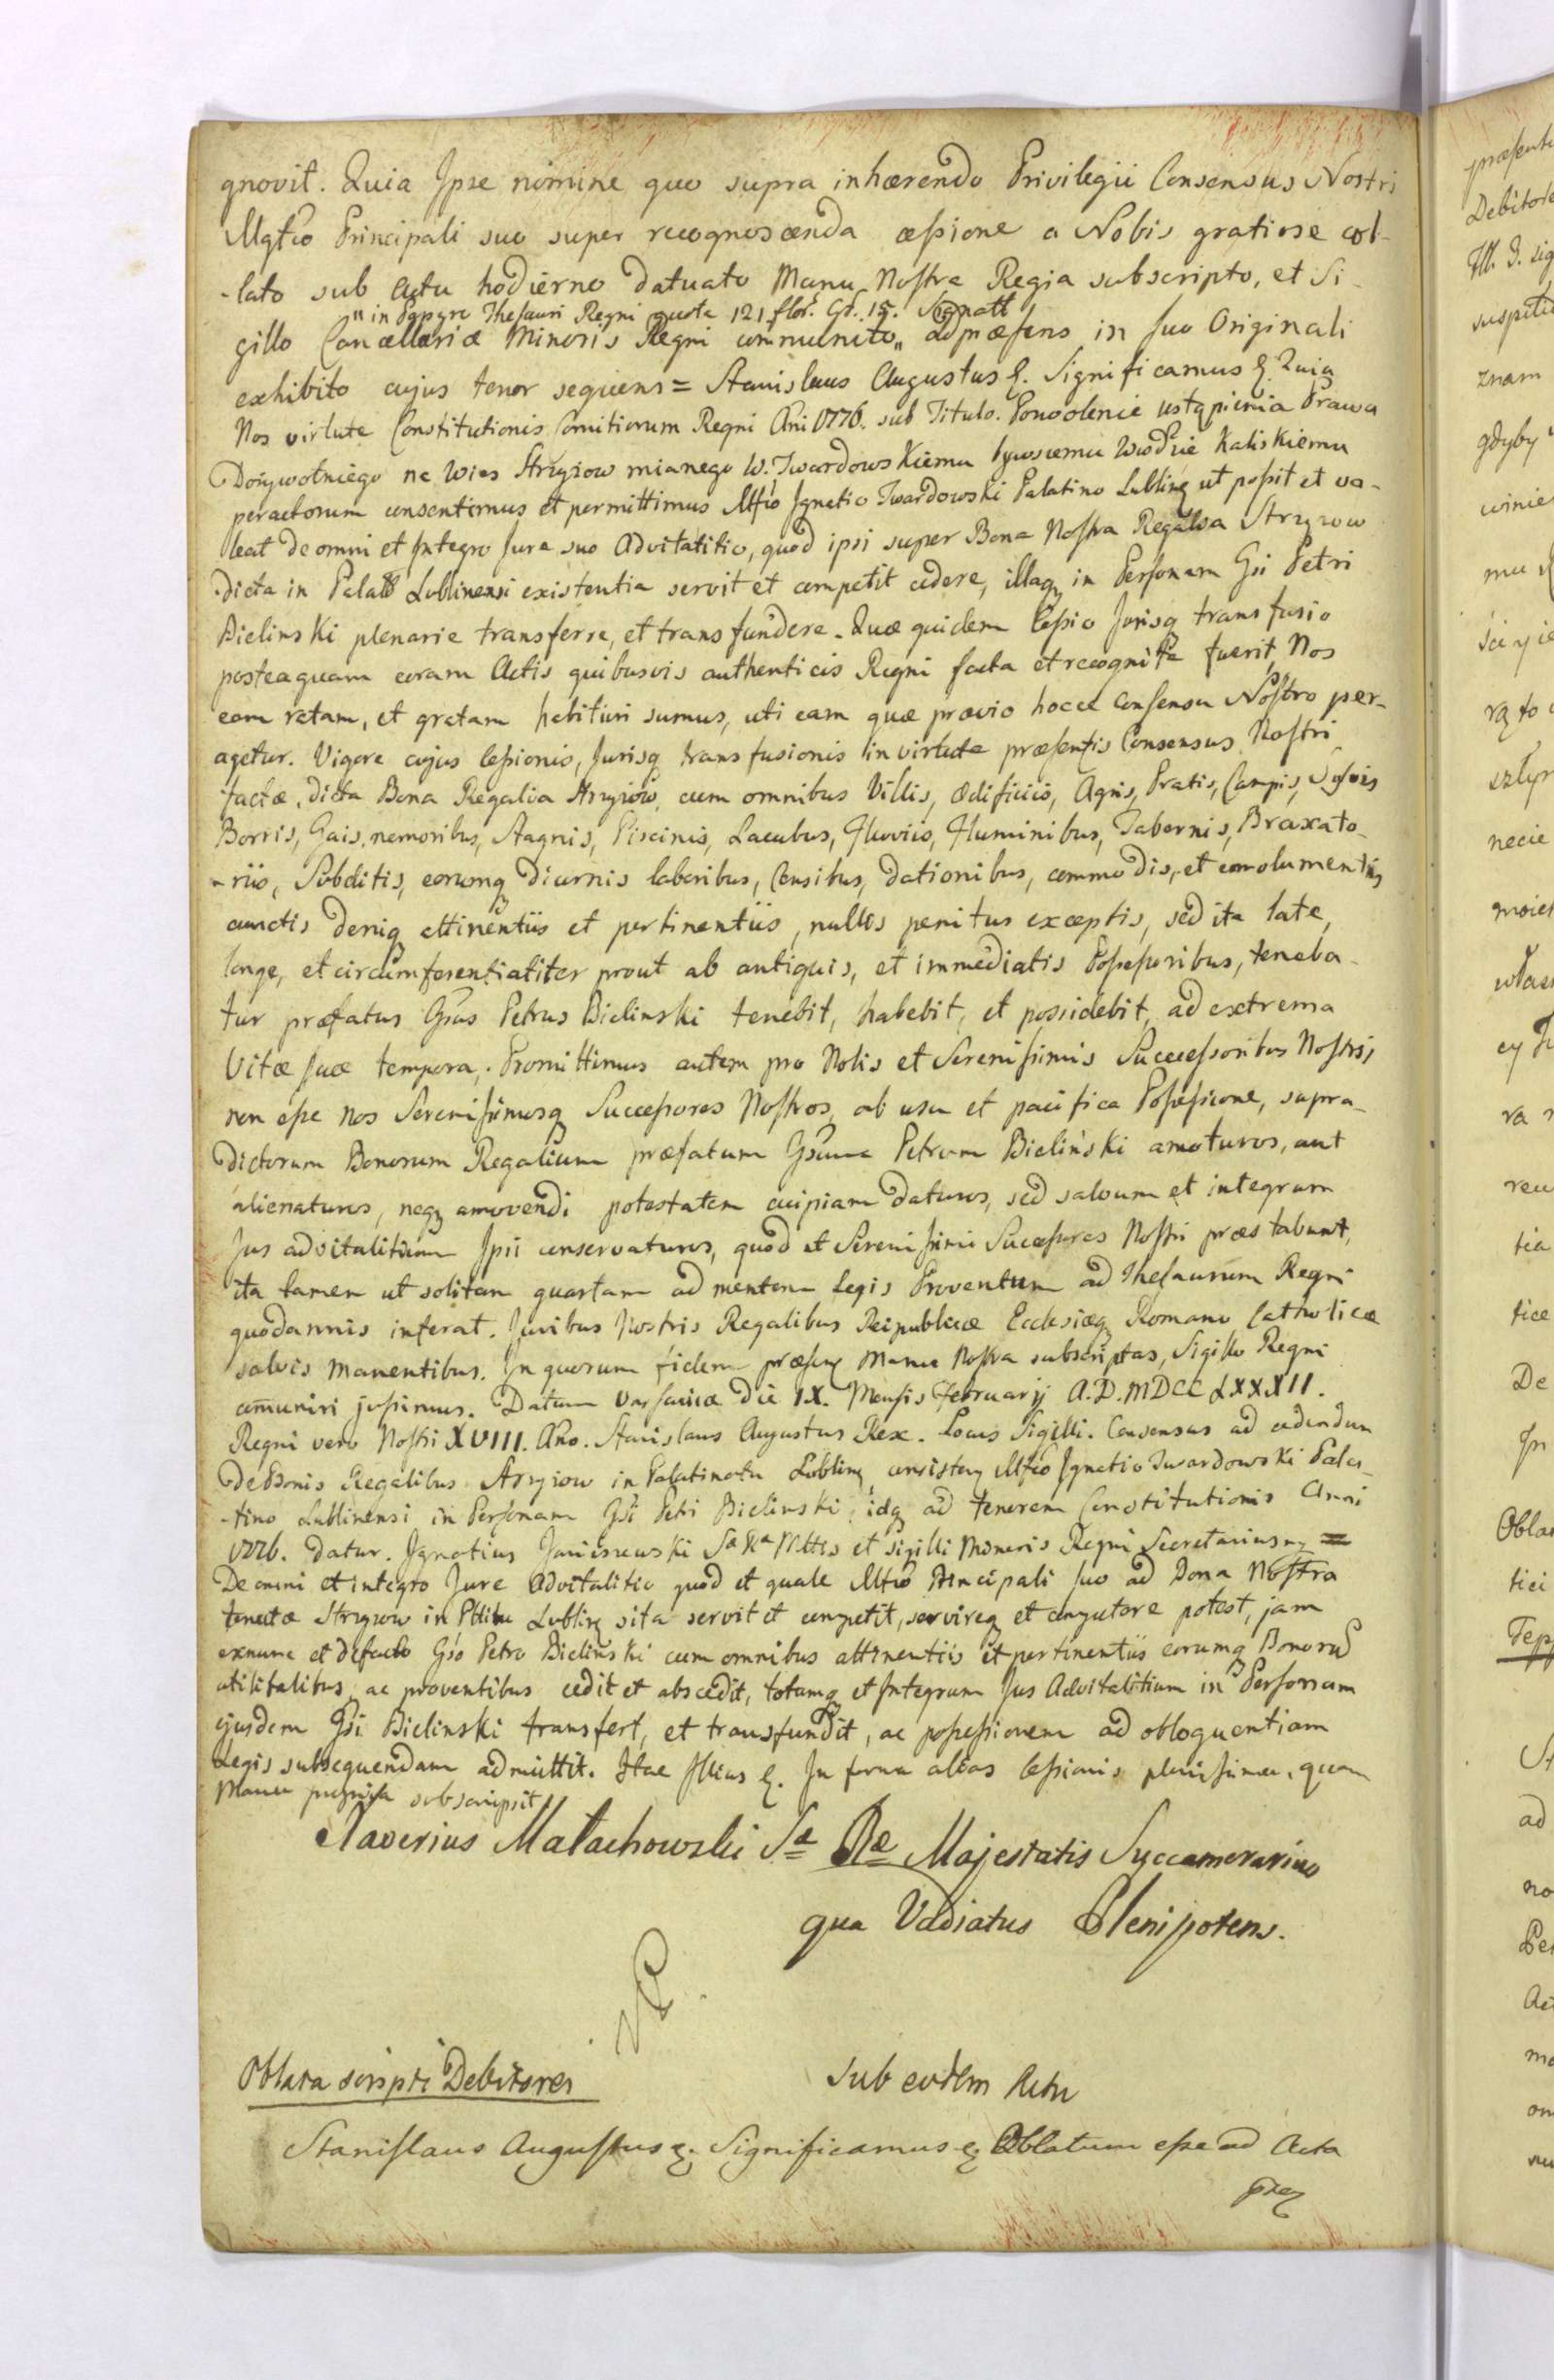 gnovit. Quia Ipse nomine quo supra inhærendo Privilegii Consensus Nostri
Mgfco Principali suo super recognoscenda cessione a Nobis gratiose col-
-lato sub Actu hodierno datuato Manu Nostra Regia subscripto, et Si-
"in Papyro Thesauri Regni quota 121 flor. Gr. 15. Signatt
gillo Cancellariæ Minoris Regni communito" ad præsens in suo Originali
exhibito cujus tenor sequens = Stanislaus Augustus &. Significamus &. Quia
Nos virtute Constitutionis Comitiorum Regni Ani 1776. sub Titulo. Pozwolenie ustąpienia Prawa
Dożywotniego na Wies Strzyżow mianego W. Twardowskiemu bywszemu Wwdzie Kaliskiemu
peractorum consentimus et permittimus Mfco Ignatio Twardowski Palatino Lublinẹ ut possit et va-
leat de omni et Integro Jure suo Advitalitio, quod ipsi super Bona Nostra Regalia Strzyzow
dicta in Palattu Lublinensi existentia servit et competit cedere, illaq in Personam Gsi Petri
Bielinski plenarie transferre, et transfundere. Quæ quidem Cessio Jurisq transfusio
posteaquam coram Actis quibusvis authenticis Regni facta et recognita fuerit, Nos
eam ratam, et gratam habituri sumus, uti eam quæ prævio hocce Consensu Nostro per-
agetur. Vigore cujus Cessionis, Jurisq transfusionis in virtute præsentis Consensus Nostri
factæ, dicta Bona Regalia Strzyżow, cum omnibus Villis, ædificiis, Agris, Pratis, Campis, Sylvis
Borris, Gais, nemoribus, Stagnis, Piscinis, Lacubus, Fluviis, Fluminibus, Tabernis, Braxato-
-riis, Subditis, eorumq diurnis laboribus, Censibus, dationibus, commodis, et emolumentis
cunctis deniq attinentiis et pertinentiis, nullis penitus exceptis, sed ita late,
longe, et circumferentialiter prout ab antiquis, et immediatis Possessoribus, teneba-
tur præfatus Gsus Petrus Bielinski tenebit, habebit, et possidebit, ad extrema
Vitæ suæ tempora. Promittimus autem pro Nobis et Serenissimis Successoribus Nostris,
non esse nos Serenissimosq Successores Nostros, ab usu et pacifica Possessione, supra-
dictorum Bonorum Regalium præfatum Gsum Petrum Bieliński amoturos, aut
alienaturos, neq amovendi potestatem cuipiam daturos, sed salvum et integrum
Jus advitalitium Ipsi conservaturos, quod et Serenissimi Successores Nostri præstabunt,
ita tamen ut solitam quartam ad mentem Legis Proventum ad Thesaurum Regni
quodannis inferat. Juribus Nostris Regalibus Reipublicæ Ecclesiæq Romano Catholicæ
salvis manentibus. In quorum fidem præseñ Manu Nostra subscriptas, Sigillo Regni
coṁuniri jussimus. Datum Varsaviæ Die IX. Mensis Februarij A.D. MDCCLXXXII.
Regni vero Nostri XVIII. Ano. Stanislaus Augustus Rex. Locus Sigilli. Consensus ad cedendum
De Bonis Regalibus Strzyżow in Palatinatu Lublinẹ consisteñ Mfco Ignatio Twardowski Pala-
-tino Lublinensi in Personam Gsi Petri Bielinski, idq ad tenorem Constitutionis Anni
1776. datur. Ignatius Janiszewski Sæ Ræ Mttis et sigilli Minoris Regni Secretarius mp =
De omni et integro Jure Advitalitio quod et quale Mfco Principali suo ad Bona Nostra
tenutæ Strzyzow in Plttu Lublinẹ sita servit et competit, servireq et competere potest, jam
exnunc et defacto Gso Petro Bieliński cum omnibus attinentiis et pertinentiis eorumq Bonorum
utilitatibus, ac proventibus cedit et abscedit, totumq et Integrum Jus Advitalitium in Personam
ejusdem Gsi Bielinski transfert, et transfundit, ac possessionem ad obloquentiam
Legis subsequendam admittit. Hac Illius &. In forma alias Cessionis plenissima, quam
Manu propria subscripsit
Xaverius Małachowski Sæ Ræ Majestatis Succamerarius
qua Vadiatus Plenipotens.
Oblata scripti Debitorei
Sub eodem Actu
Stanislaus Augustus &. Significamus &. Oblatum esse ad Acta